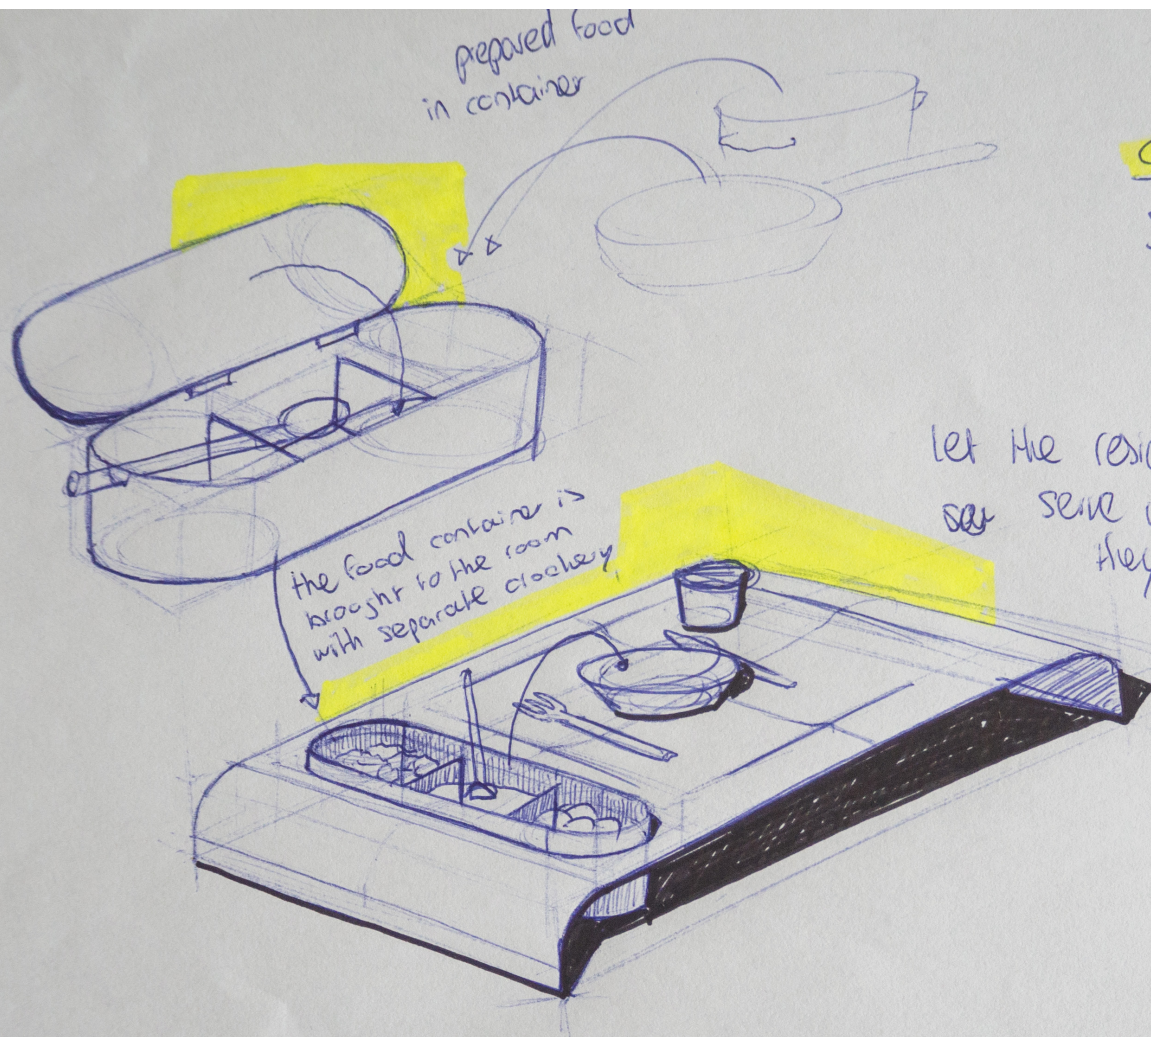 prepared food
in container
let the
serve
they
the food container is
brought to the room
with separate crockery